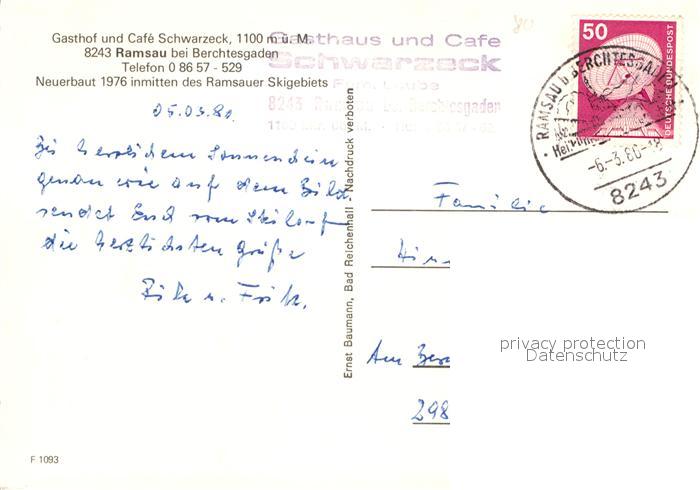 Gasthof und Café Schwarzeck, 1100 m ü. M.
8243 Ramsau bei Berchtesgaden
Telefon 0 86 57 - 529
Neuerbaut 1976 inmitten des Ramsauer Skigebiets
Gasthaus und Cafe
Schwarzeck
8243 Ramsau bei Berchtesgaden
80
50
DEUTSCHE BUNDESPOST
RAMSAU B BERCHTESGADEN
-6.-3.80-18
8243
05.03.80
Bei herrlichem Sonnenschein
genau wie auf dem Bild
sendet Euch vom Skilauf
die herzlichsten Grüße
u. Fritz.
Ernst Baumann, Bad Reichenhall - Nachdruck verboten
Familie
Am
298
privacy protection
Datenschutz
F 1093